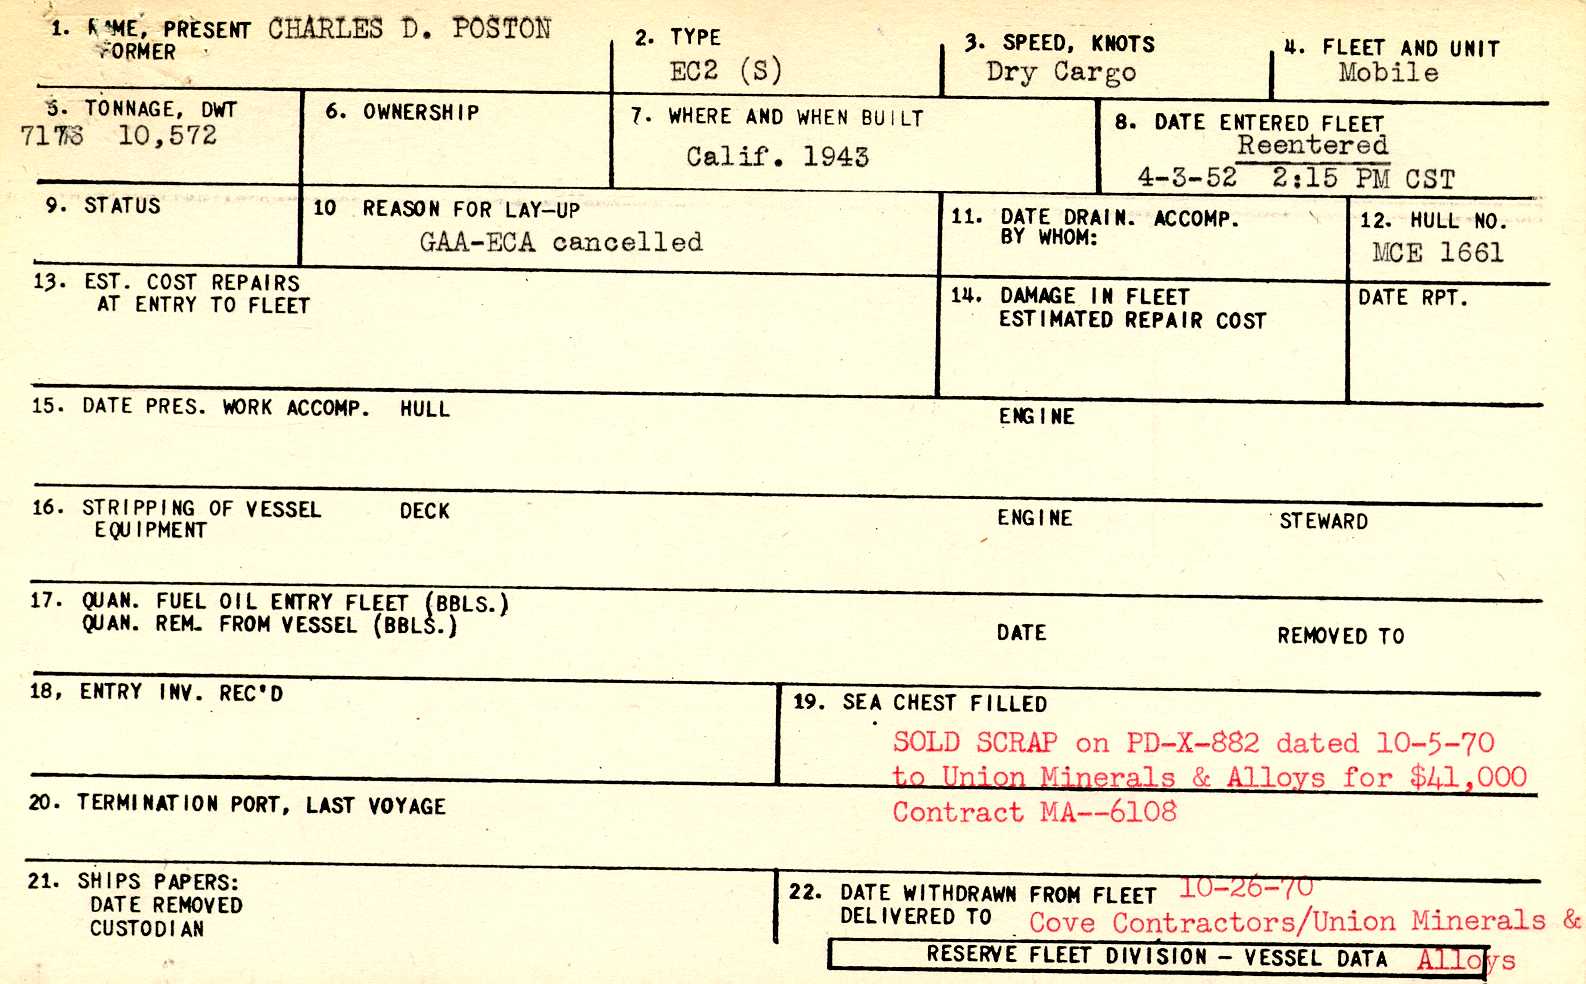 1. NAME, PRESENT CHARLES D. POSTON
FORMER
2. TYPE
EC2 (S)
3. SPEED, KNOTS
Dry Cargo
4. FLEET AND UNIT
Mobile
5. TONNAGE, DWT
10,572
6. OWNERSHIP
7. WHERE AND WHEN BUILT
Calif. 1943
8. DATE ENTERED FLEET
Reentered
4-3-52 2:15 PM CST
9. STATUS
10 REASON FOR LAY-UP
GAA-ECA cancelled
11. DATE DRAIN. ACCOMP.
BY WHOM:
12. HULL NO.
MCE 1661
13. EST. COST REPAIRS
AT ENTRY TO FLEET
14. DAMAGE IN FLEET
ESTIMATED REPAIR COST
DATE RPT.
15. DATE PRES. WORK ACCOMP. HULL
ENGINE
16. STRIPPING OF VESSEL DECK
EQUIPMENT
ENGINE
STEWARD
17. QUAN. FUEL OIL ENTRY FLEET (BBLS.)
QUAN. REM. FROM VESSEL (BBLS.)
DATE
REMOVED TO
18, ENTRY INV. REC'D
19. SEA CHEST FILLED
SOLD SCRAP on PD-X-882 dated 10-5-70
to Union Minerals & Alloys for $41,000
Contract MA--6108
20. TERMINATION PORT, LAST VOYAGE
21. SHIPS PAPERS:
DATE REMOVED
CUSTODIAN
22. DATE WITHDRAWN FROM FLEET 10-26-70
DELIVERED TO Cove Contractors/Union Minerals &
RESERVE FLEET DIVISION - VESSEL DATA Alloys